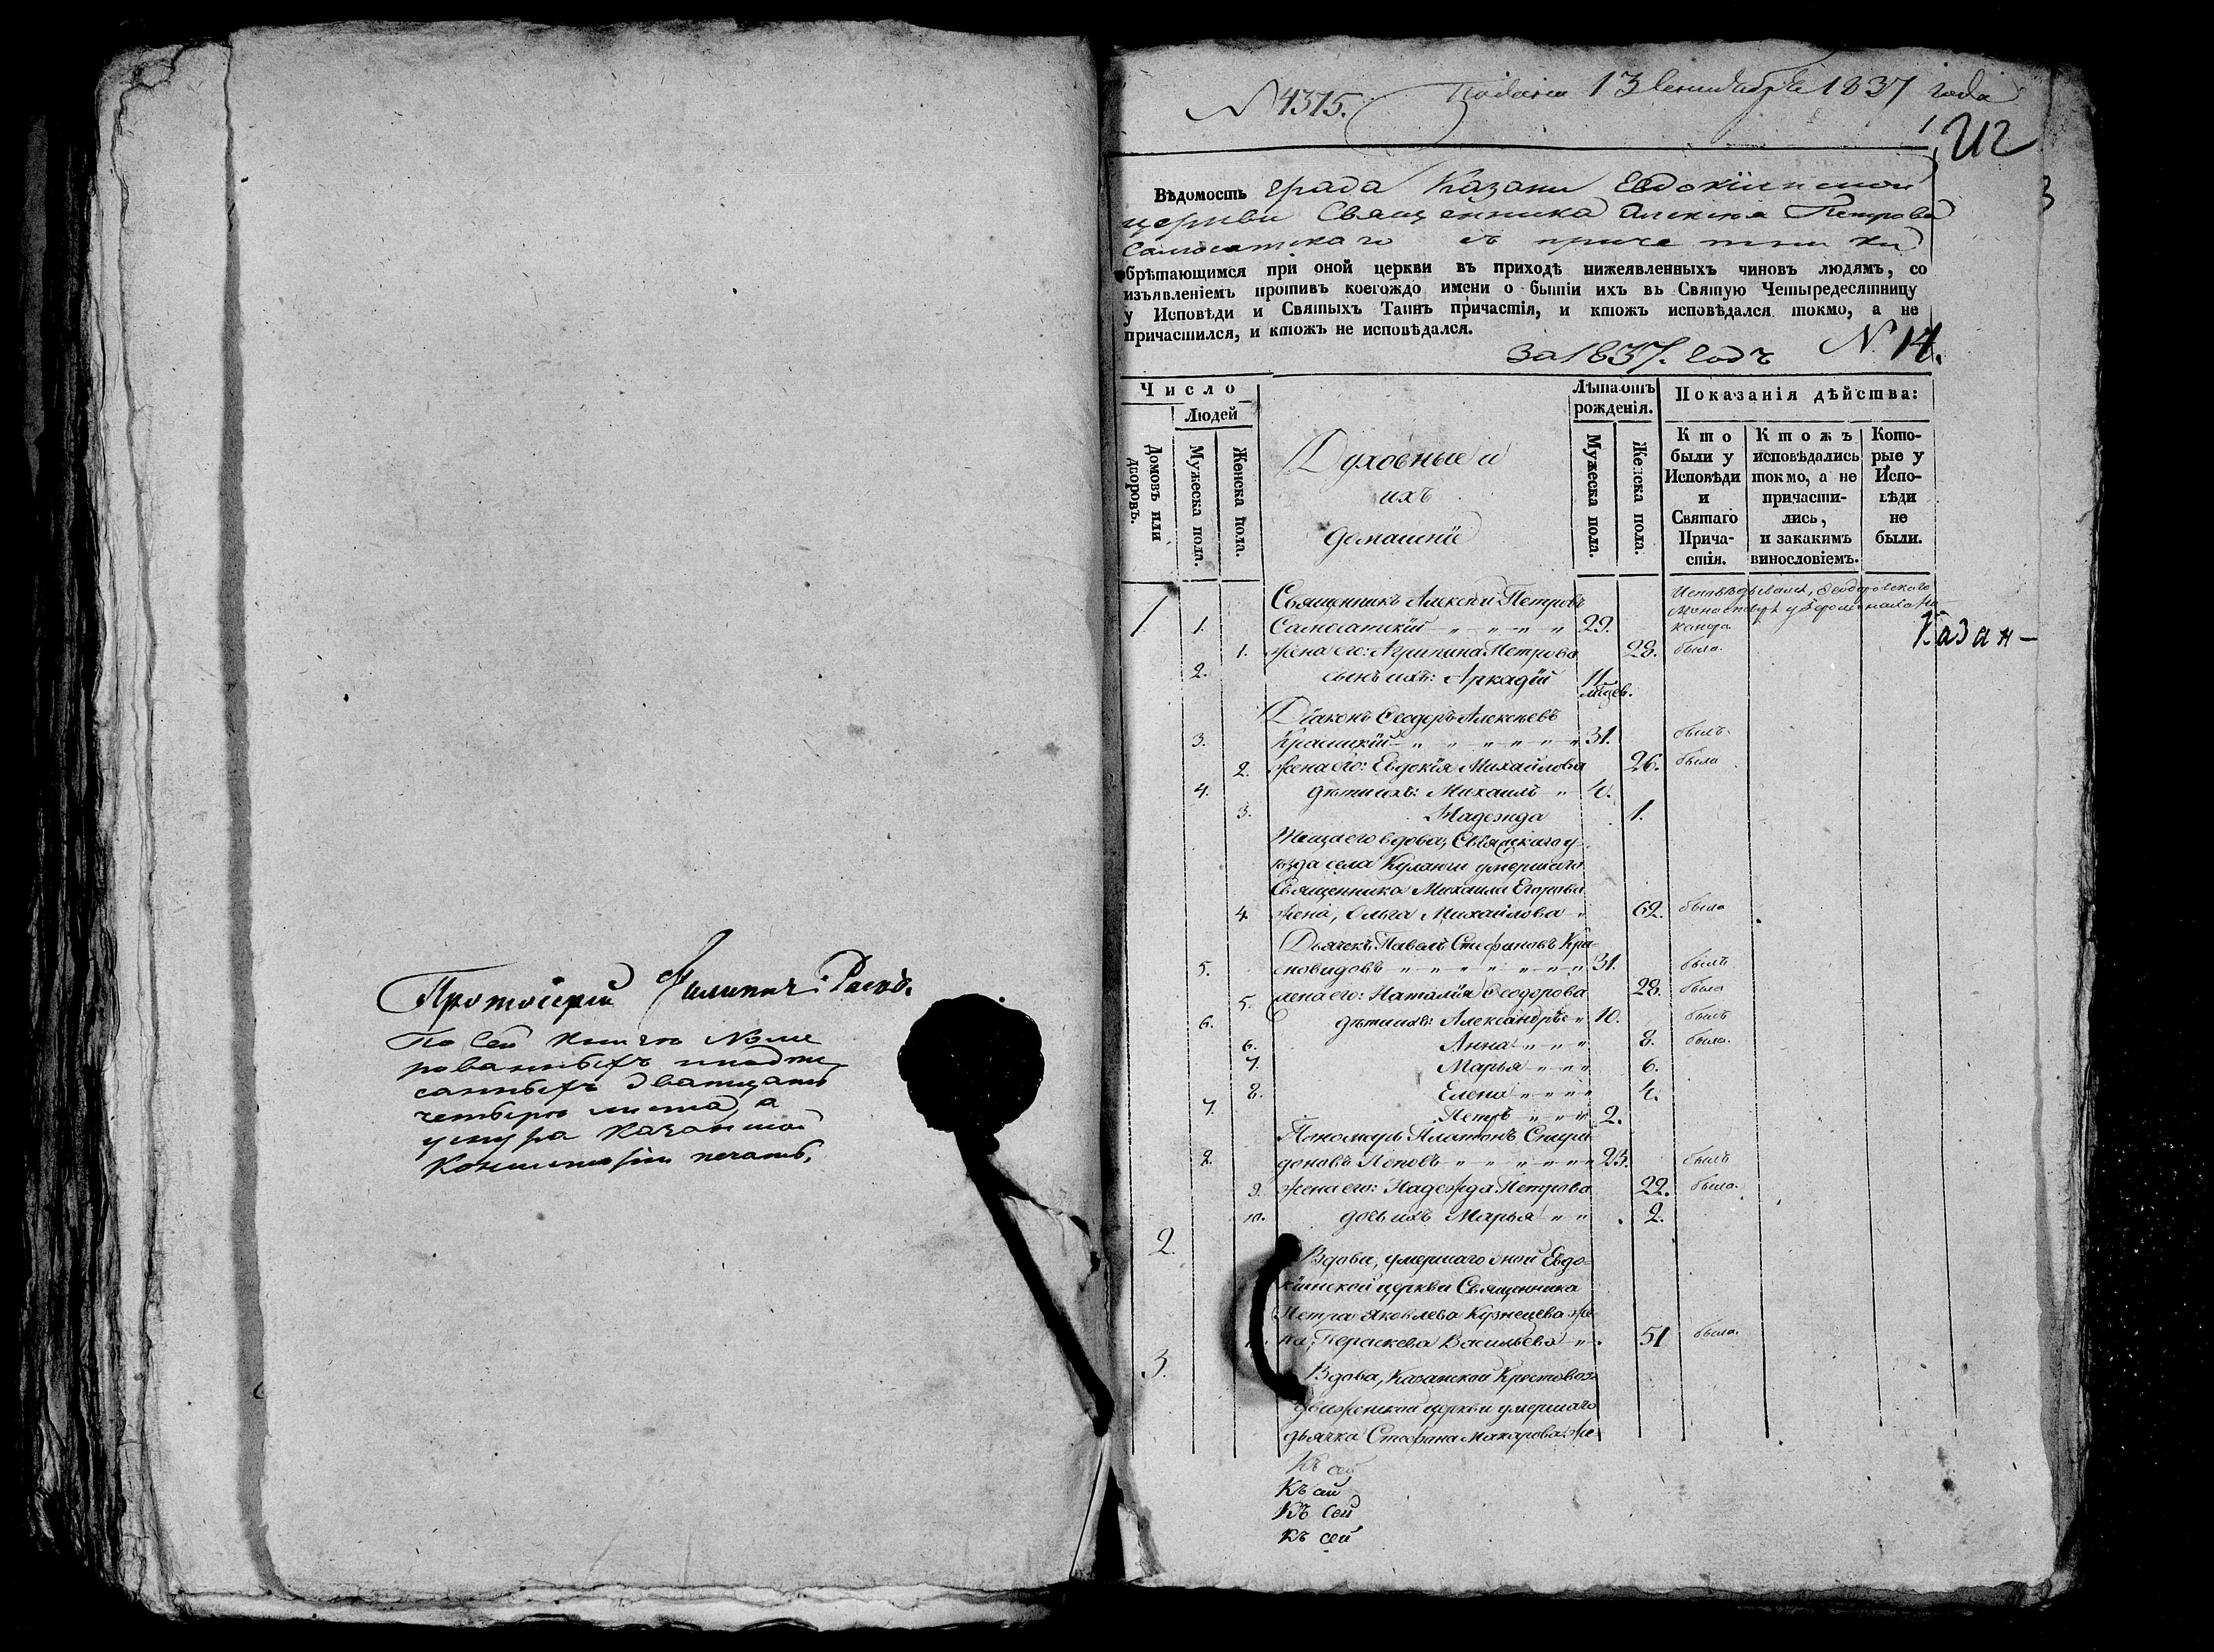 Протоіерей Филиппъ
По сей книгѣ Номе
рованныхъ и подпи
санныхъ дватцать
четыре листа, а
у шнура Казанской
Консисторіи печать,
N 4375. Подана 13 Сентября 1837 года
Вѣдомость града Казани Евдокіинской
церкви Священника Алексѣя Петрова
Самосатскаго съ причетники
обрѣтающимся при оной церкви въ приходѣ нижеявленныхъ чиновъ людямъ, со
изъявленіемъ противъ коегождо имени о бытіи ихъ въ Святую Четыредесятницу
у Исповѣди и Святыхъ Таинъ причастія, и ктожъ исповѣдался токмо, а не
причастился, и ктожъ не исповѣдался.
За 1837. годъ N. 14.
Число
Людей
Домовъ или дворовъ.
Мужеска пола.
Женска пола.
Духовные и
ихъ
домашніе
Лѣта отъ
рожденія.
Мужеска пола.
Женска пола.
Показанія дѣйства:
Кто
были у
Исповѣди
и
Святаго
Прича-
стія.
Ктожъ
исповѣдались
токмо, а не
причасти-
лись,
и закакимъ
винословіемъ.
Кото-
рые у
Испо-
вѣди
не
были.
Священникъ Алексѣй Петровъ
1 1. Самосатскій " " " " 29.
Исповѣдывался, Ѳеодоровскаго
Монастыря у Іеромонаха Ни-
канора
Казан-
1. жена его: Агрипина Петрова 28. была.
2. сынъ ихъ: Аркадій 11 мѣсяцев.
Діаконъ Ѳеодоръ Алексѣевъ
3. " " " " " 31. былъ.
2. Жена его: Евдокія Михайлова 26. была
4. дѣти ихъ: Михаилъ " 4.
3. Надежда 1.
Теща его вдова, Свіяжскаго у-
ѣзда села Куланги умершаго
Священника Михаила Егорова
4. жена, Ольга Михайлова " 62. была
Дьячекъ Павелъ Стефановъ Кра-
5. сновидовъ " " " " " " " 31. былъ
5. жена его: Наталія Ѳеодорова 28. была
6. дѣти ихъ: Александръ " 10. былъ
6. Анна " " " 8. была.
7. Марья " " " 6.
8. Елена " " " " 4.
7. Петръ " " " 2.
Пономарь Платонъ Спири
8. доновъ Поповъ " " " " " " 23. былъ
9. Жена его: Надежда Петрова 22. была.
10. дочь ихъ Марья " " 2.
2. Вдова, умершаго оной Евдо-
кіинской церкви Священника
Петра Яковлева Кузнецева же
на, Пераскева Васильева " 51 была.
3. Вдова, Казанской Крестовоз-
движенской церкви умершаго
дьячка Стефана Макарова же
Къ сей
Къ сей
Къ сей
Къ сей